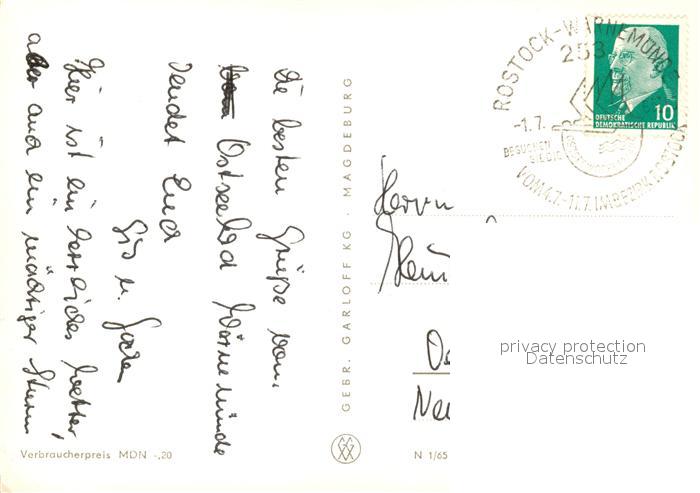 die besten Grüße vom
Ostseebad Warnemünde
sendet Euch
Gis u.
Hier ist ein herrliches Wetter,
aber auch ein mächtiger Sturm
GEBR. GARLOFF KG · MAGDEBURG
Verbraucherpreis MDN -,20
N 1/65
ROSTOCK-WARNEMÜNDE
253
-1.7.
BESUCHEN
SIE DIE
VOM 4.7.-11.7. IM BEZIRK ROSTOCK
10
DEUTSCHE
DEMOKRATISCHE REPUBLIK
Herrn
Hein
Os
Neu
privacy protection
Datenschutz